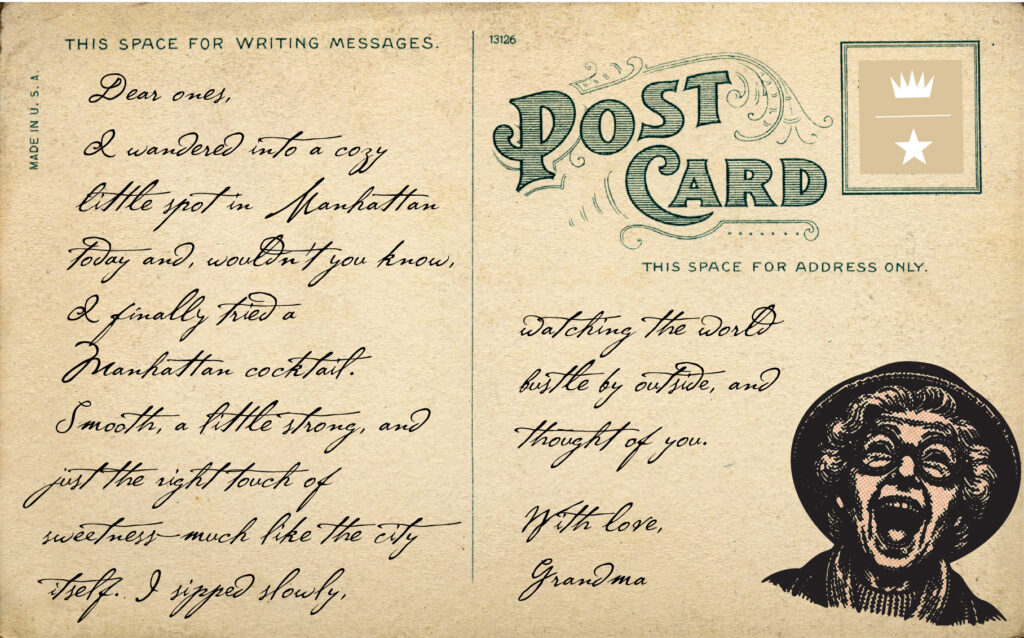 THIS SPACE FOR WRITING MESSAGES.
MADE IN U. S. A.
Dear ones,
I wandered into a cozy
little spot in Manhattan
today and, wouldn't you know,
I finally tried a
Manhattan cocktail.
Smooth, a little strong, and
just the right touch of
sweetness—much like the city
itself. I sipped slowly,
13126
POST
CARD
THIS SPACE FOR ADDRESS ONLY.
watching the world
bustle by outside, and
thought of you.
With love,
Grandma